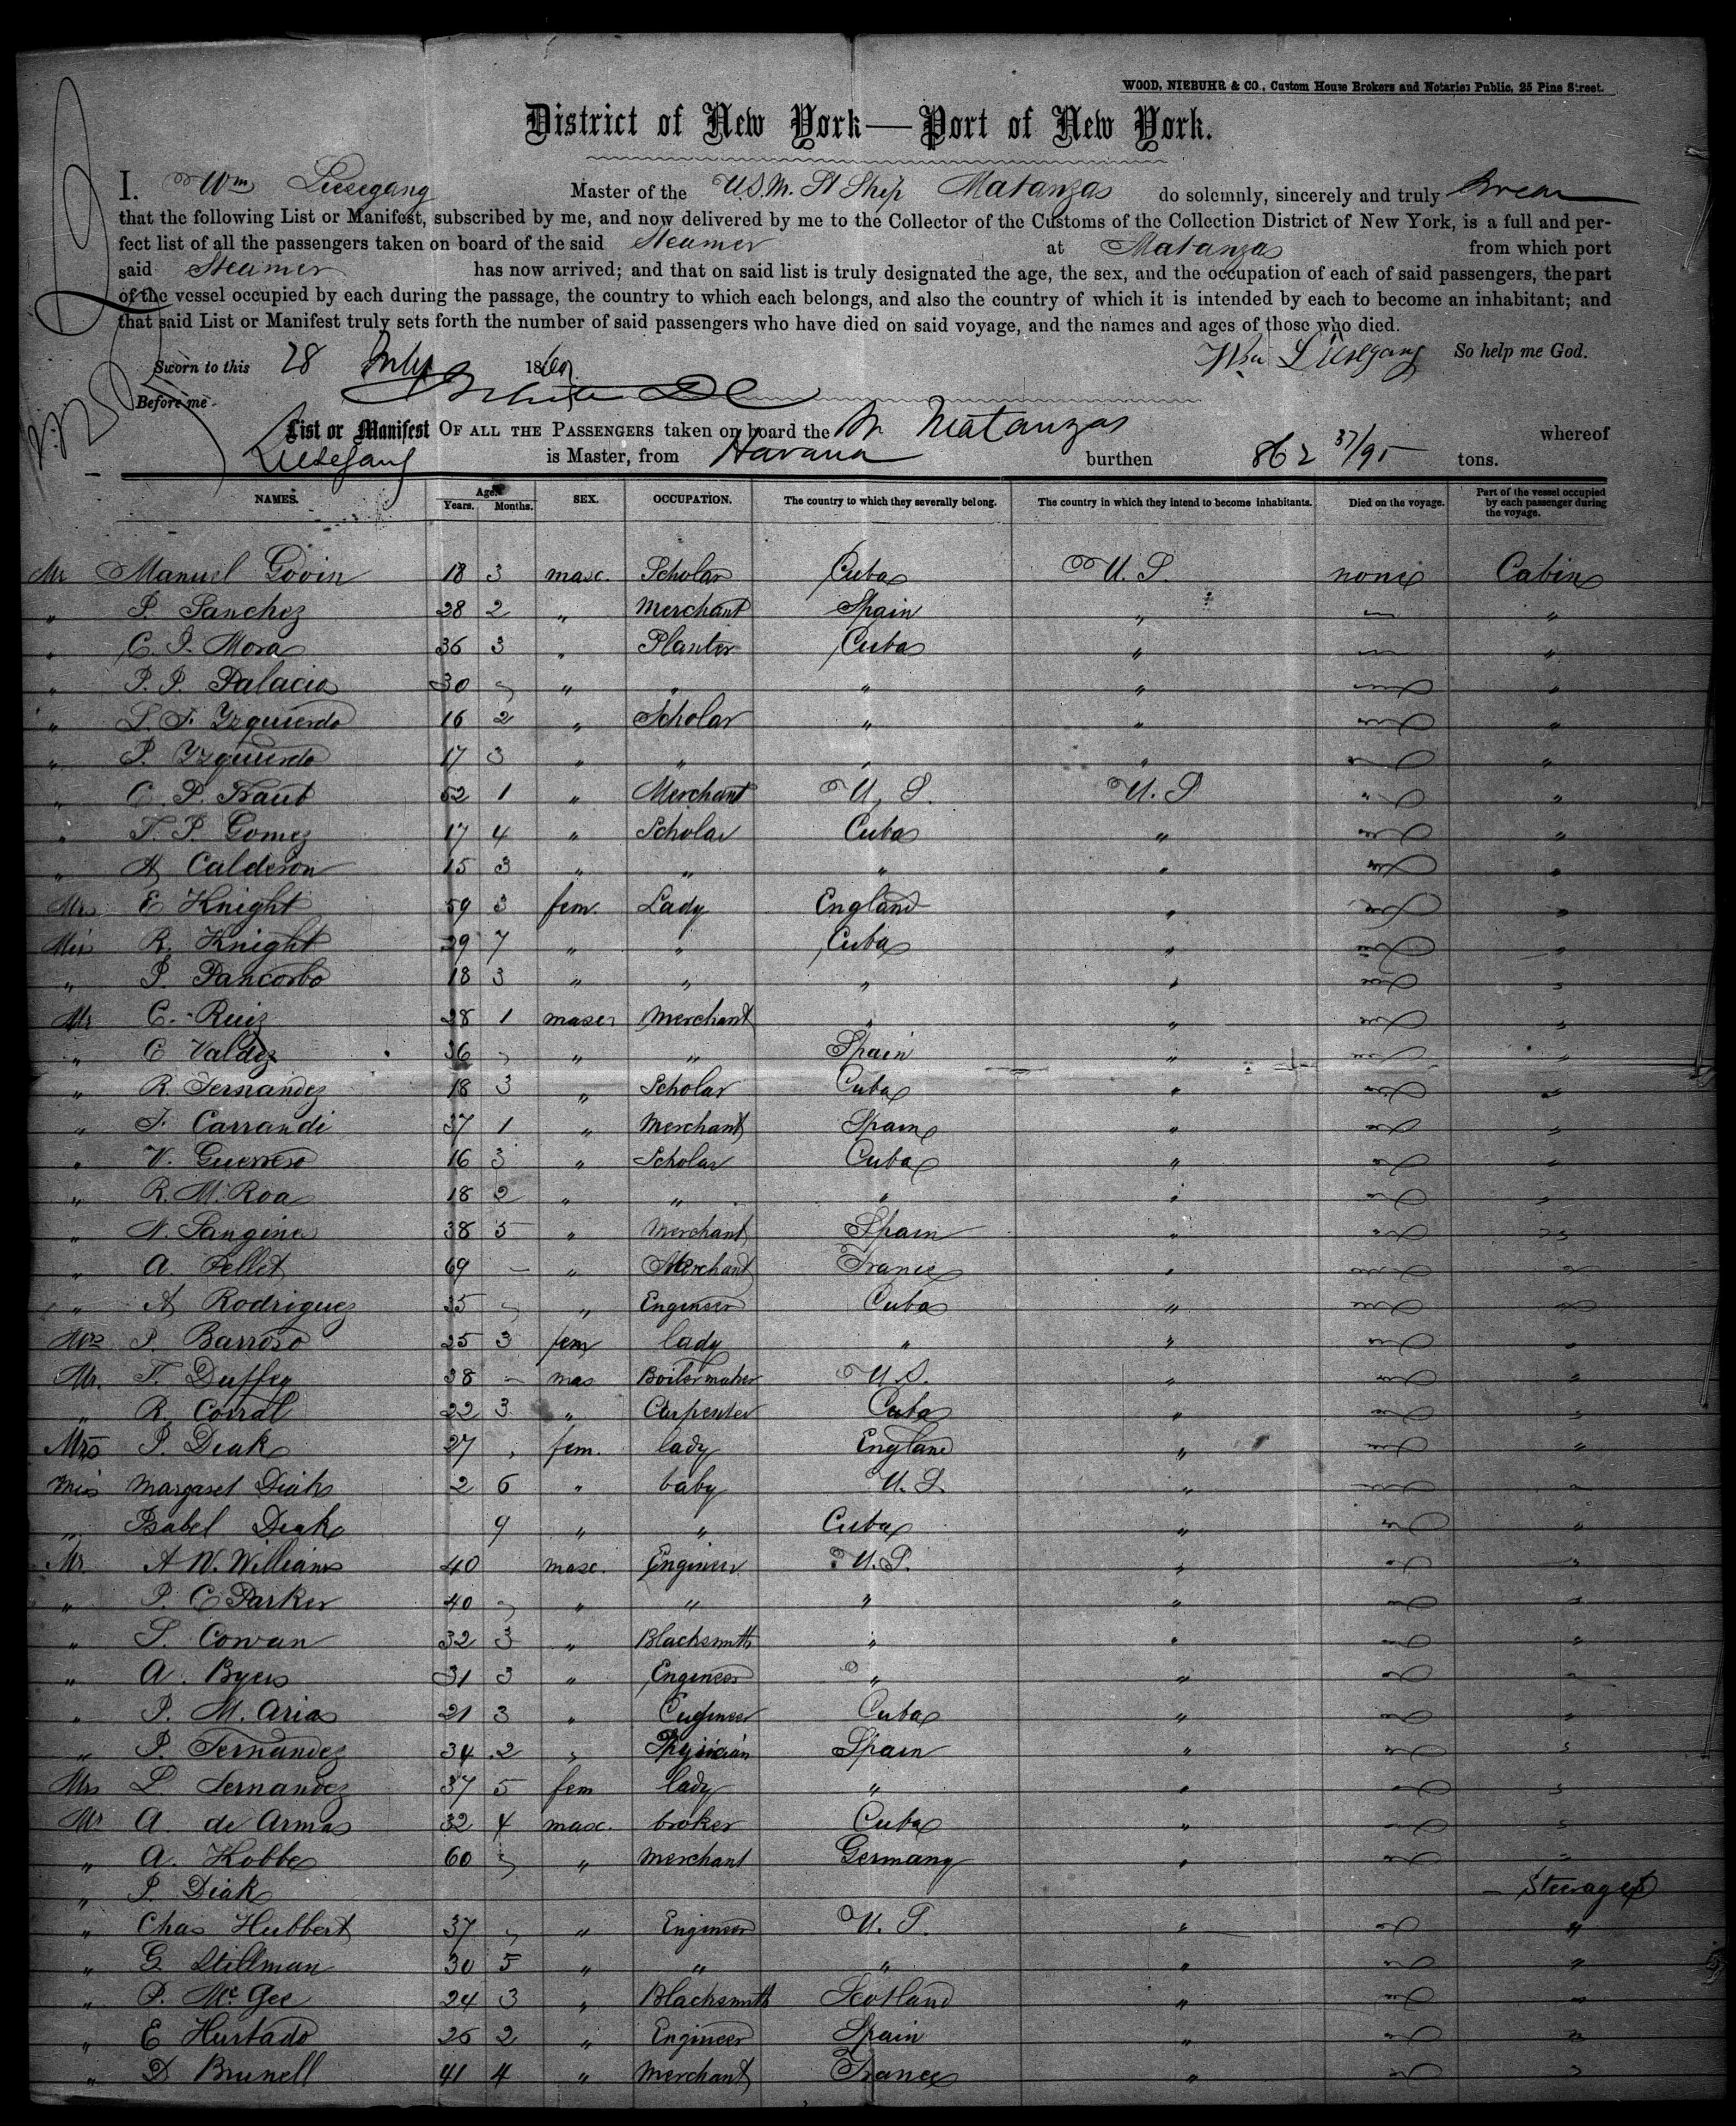 WOOD, NIEBUHR & CO., Custom House Brokers and Notaries Public, 25 Pine Street.
District of New York—Port of New York.
I. Wm Liesegang Master of the U.S.M. St Ship Matanzas do solemnly, sincerely and truly swear
that the following List or Manifest, subscribed by me, and now delivered by me to the Collector of the Customs of the Collection District of New York, is a full and per-
fect list of all the passengers taken on board of the said Steamer at Matanzas from which port
said Steamer has now arrived; and that on said list is truly designated the age, the sex, and the occupation of each of said passengers, the part
of the vessel occupied by each during the passage, the country to which each belongs, and also the country of which it is intended by each to become an inhabitant; and
that said List or Manifest truly sets forth the number of said passengers who have died on said voyage, and the names and ages of those who died.
Wm Liesegang So help me God.
Sworn to this 28 July 1869
Before me
List or Manifest OF ALL THE PASSENGERS taken on board the Sr Matanzas whereof
Liesegang is Master, from Havana burthen 862 37/95 tons.
NAMES. Age. Years. Months. SEX. OCCUPATION. The country to which they severally belong. The country in which they intend to become inhabitants. Died on the voyage. Part of the vessel occupied by each passenger during the voyage.
Mr Manuel Govin 18 3 masc. Scholar Cuba U. S. none Cabin
" P. Sanchez 28 2 " Merchant Spain " "
" C. I. Mora 36 3 " Planter Cuba " "
" P. P. Palacio 30 " " " " " "
" L. F. Yzquierdo 16 2 " Scholar " " "
" P. Yzquierdo 17 3 " " " " "
" C. P. Traub 52 1 " Merchant U. S. U. S " "
" T. P. Gomez 17 4 " Scholar Cuba " "
" A Calderon 15 3 " " " " "
Mrs E Knight 59 3 fem. Lady England " "
Miss R. Knight 29 7 " " Cuba " "
" P. Pancorbo 18 3 " " " " "
Mr C. Ruiz 28 1 masc Merchant " " "
" C Valdez 36 " " " Spain " "
" R. Fernandez 18 3 " Scholar Cuba " "
" F. Carrandi 37 1 " Merchant Spain " "
" V. Guerrero 16 3 " Scholar Cuba " "
" R. M. Roa 18 2 " " " " "
" N. Sangines 38 5 " Merchant Spain " "
" A. Pellet 69 – " Merchant France "
" A Rodriguez 35 " " Engineer Cuba "
Mrs P. Barroso 25 3 fem lady " " "
Mr. T. Duffey 28 – mas Boilermaker U. S. " "
" R. Corral 22 3 " Carpenter Cuba " "
Mrs P. Diak 27 " fem. lady England " "
Miss Margaret Diak 2 6 " baby U. S. "
" Isabel Diak 9 " " Cuba " "
Mr. A W. Williams 40 masc. Engineer U. S. " "
" P. C Parker 40 " " " " " "
" S. Cowan 32 3 " Blacksmith " " "
" A. Byers 31 3 " Engineer " "
" P. M. Arias 21 3 " Engineer Cuba " "
" P. Fernandez 34 2 " Physician Spain " "
Mrs L. Fernandez 37 5 fem lady " " "
Mr A. de Armas 32 4 masc. broker Cuba " "
" A. Kobbe 60 " " merchant Germany " "
" P. Diak Steerage
" Chas Hubbert 37 " " Engineer U. S. " "
" G Stillman 30 5 " " " " "
" P. McGee 24 3 " Blacksmith Scotland " "
" E Hurtado 25 2 " Engineer Spain " "
" D Brunell 41 4 " Merchant France " "